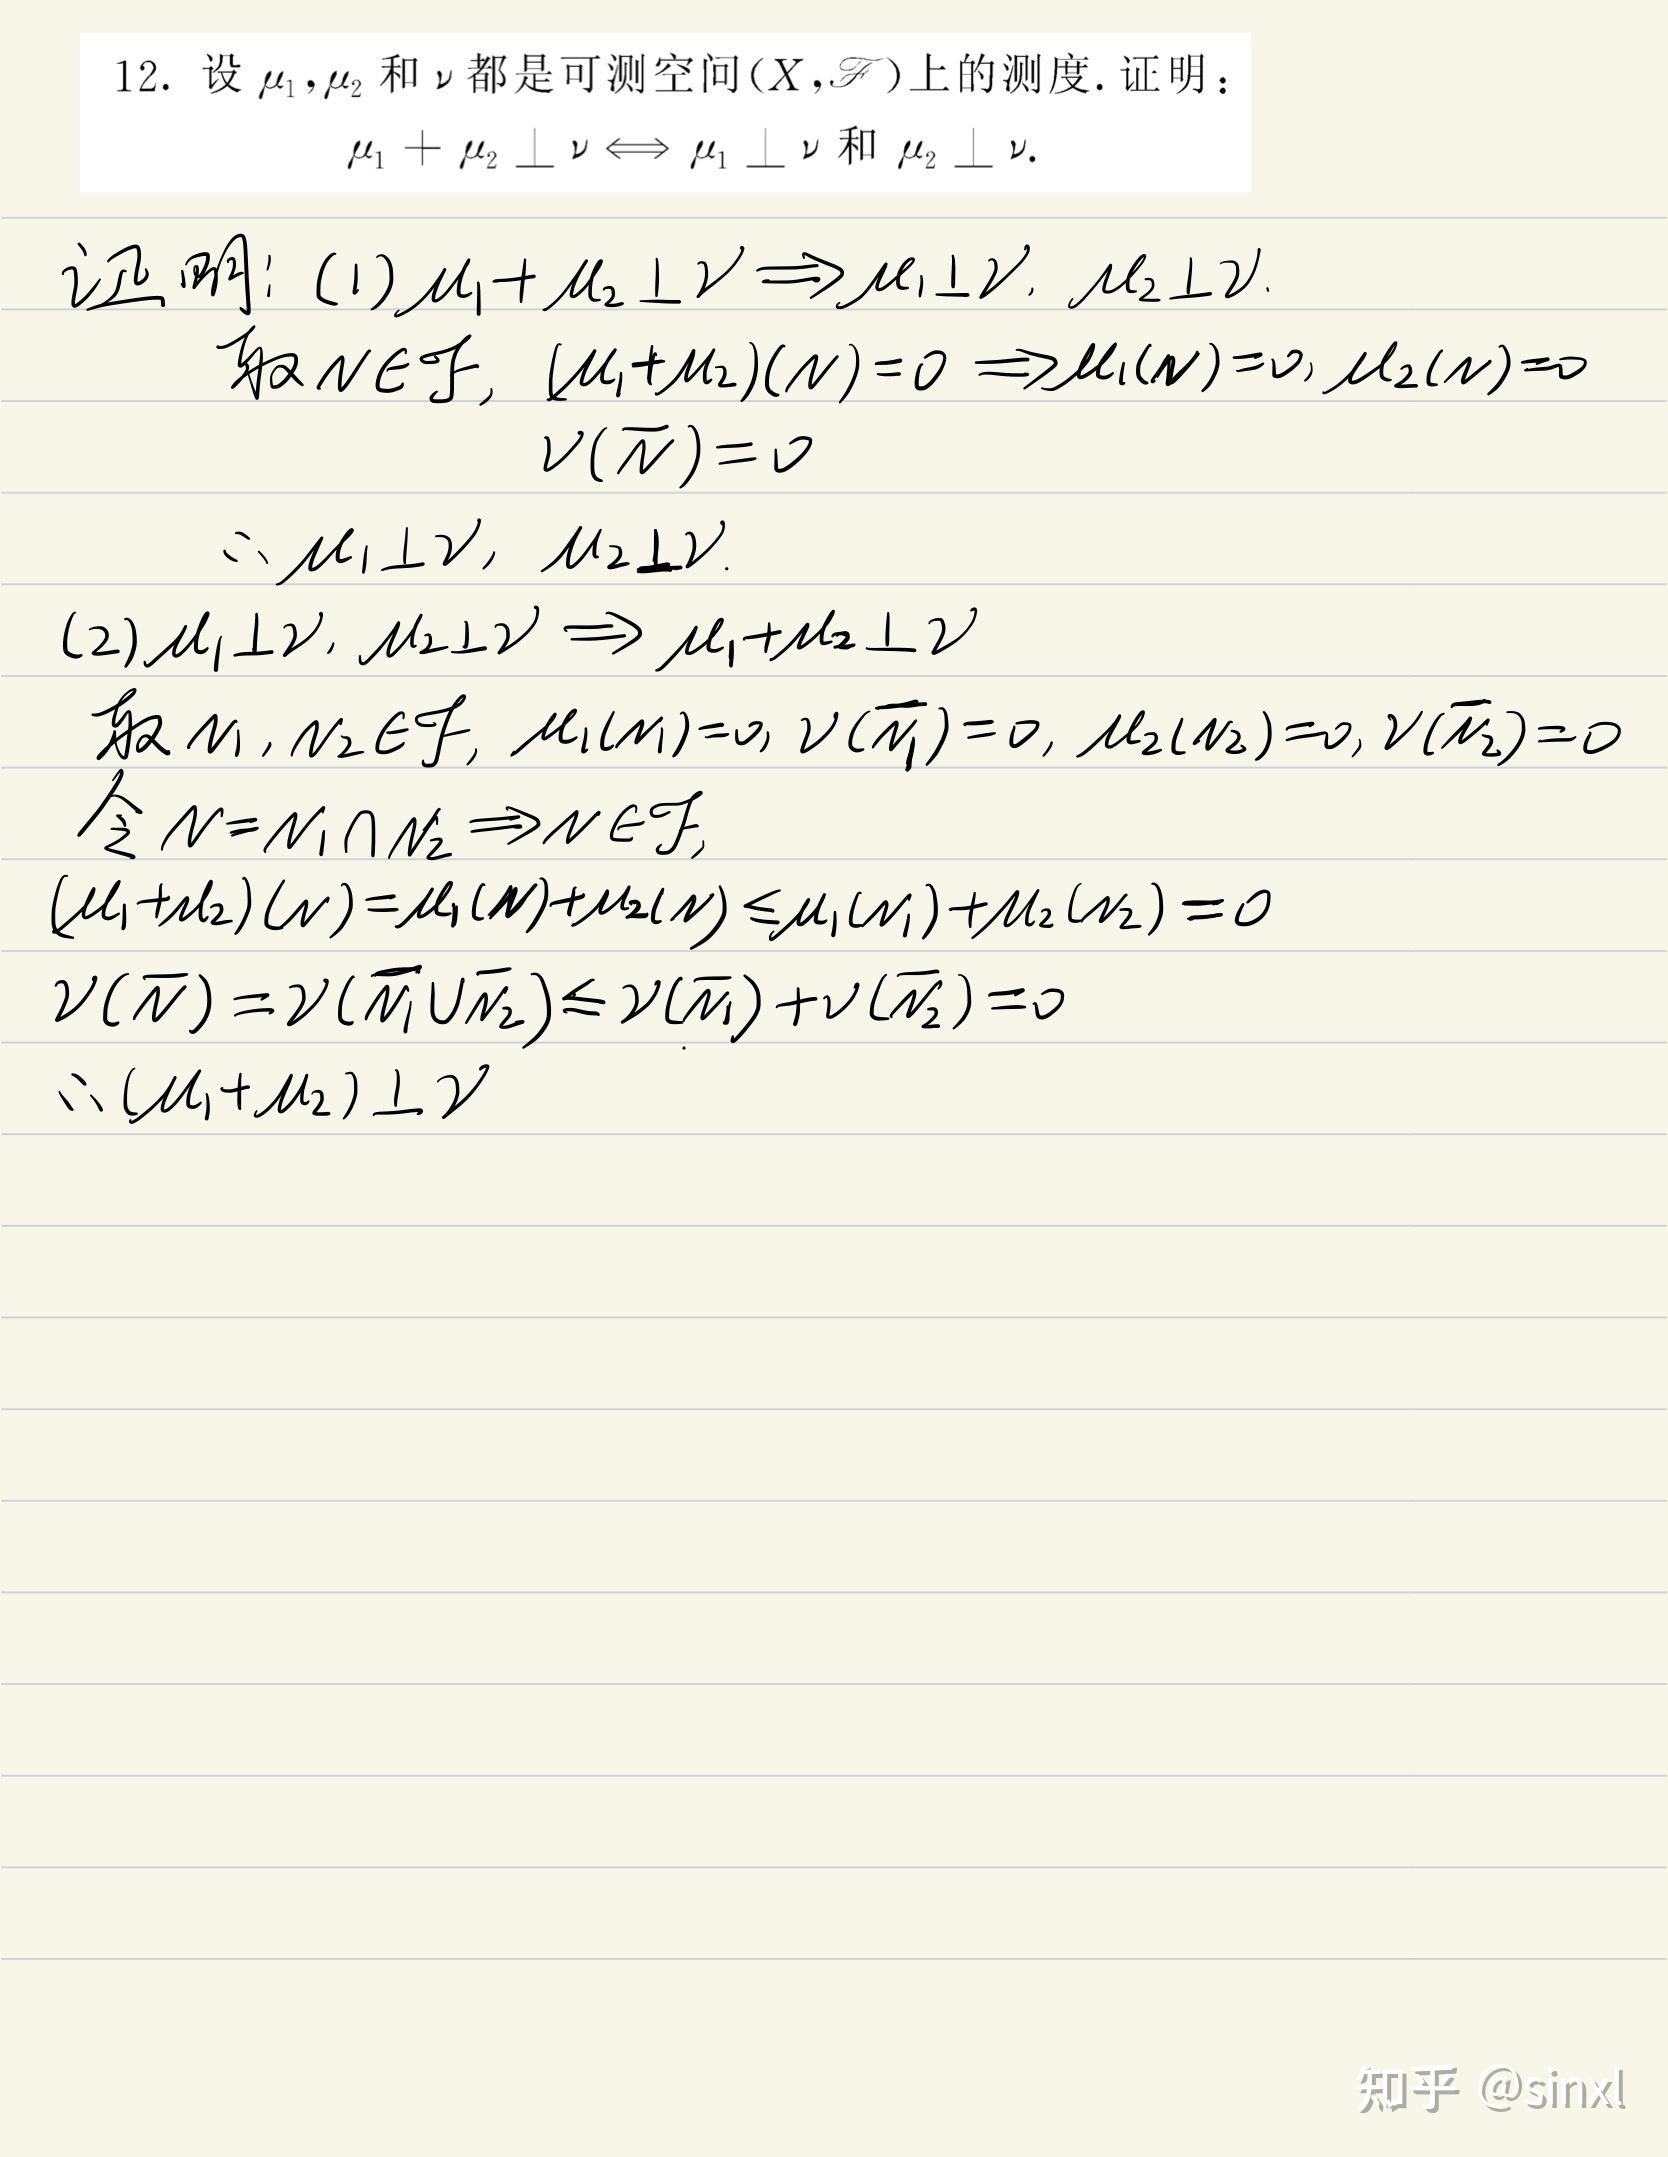 12. 设 μ₁,μ₂ 和 ν 都是可测空间(X,ℱ)上的测度.证明：
μ₁ + μ₂ ⊥ ν ⟺ μ₁ ⊥ ν 和 μ₂ ⊥ ν.
证明: (1) μ₁+μ₂⊥ν ⟹ μ₁⊥ν, μ₂⊥ν.
取 N∈ℱ, (μ₁+μ₂)(N)=0 ⟹ μ₁(N)=0, μ₂(N)=0
ν(N̅)=0
∴ μ₁⊥ν, μ₂⊥ν.
(2) μ₁⊥ν, μ₂⊥ν ⟹ μ₁+μ₂⊥ν
取 N₁, N₂∈ℱ, μ₁(N₁)=0, ν(N̅₁)=0, μ₂(N₂)=0, ν(N̅₂)=0
令 N=N₁∩N₂ ⟹ N∈ℱ,
(μ₁+μ₂)(N)=μ₁(N)+μ₂(N)≤μ₁(N₁)+μ₂(N₂)=0
ν(N̅)=ν(N̅₁∪N̅₂)≤ν(N̅₁)+ν(N̅₂)=0
∴(μ₁+μ₂)⊥ν
知乎 @sinxl